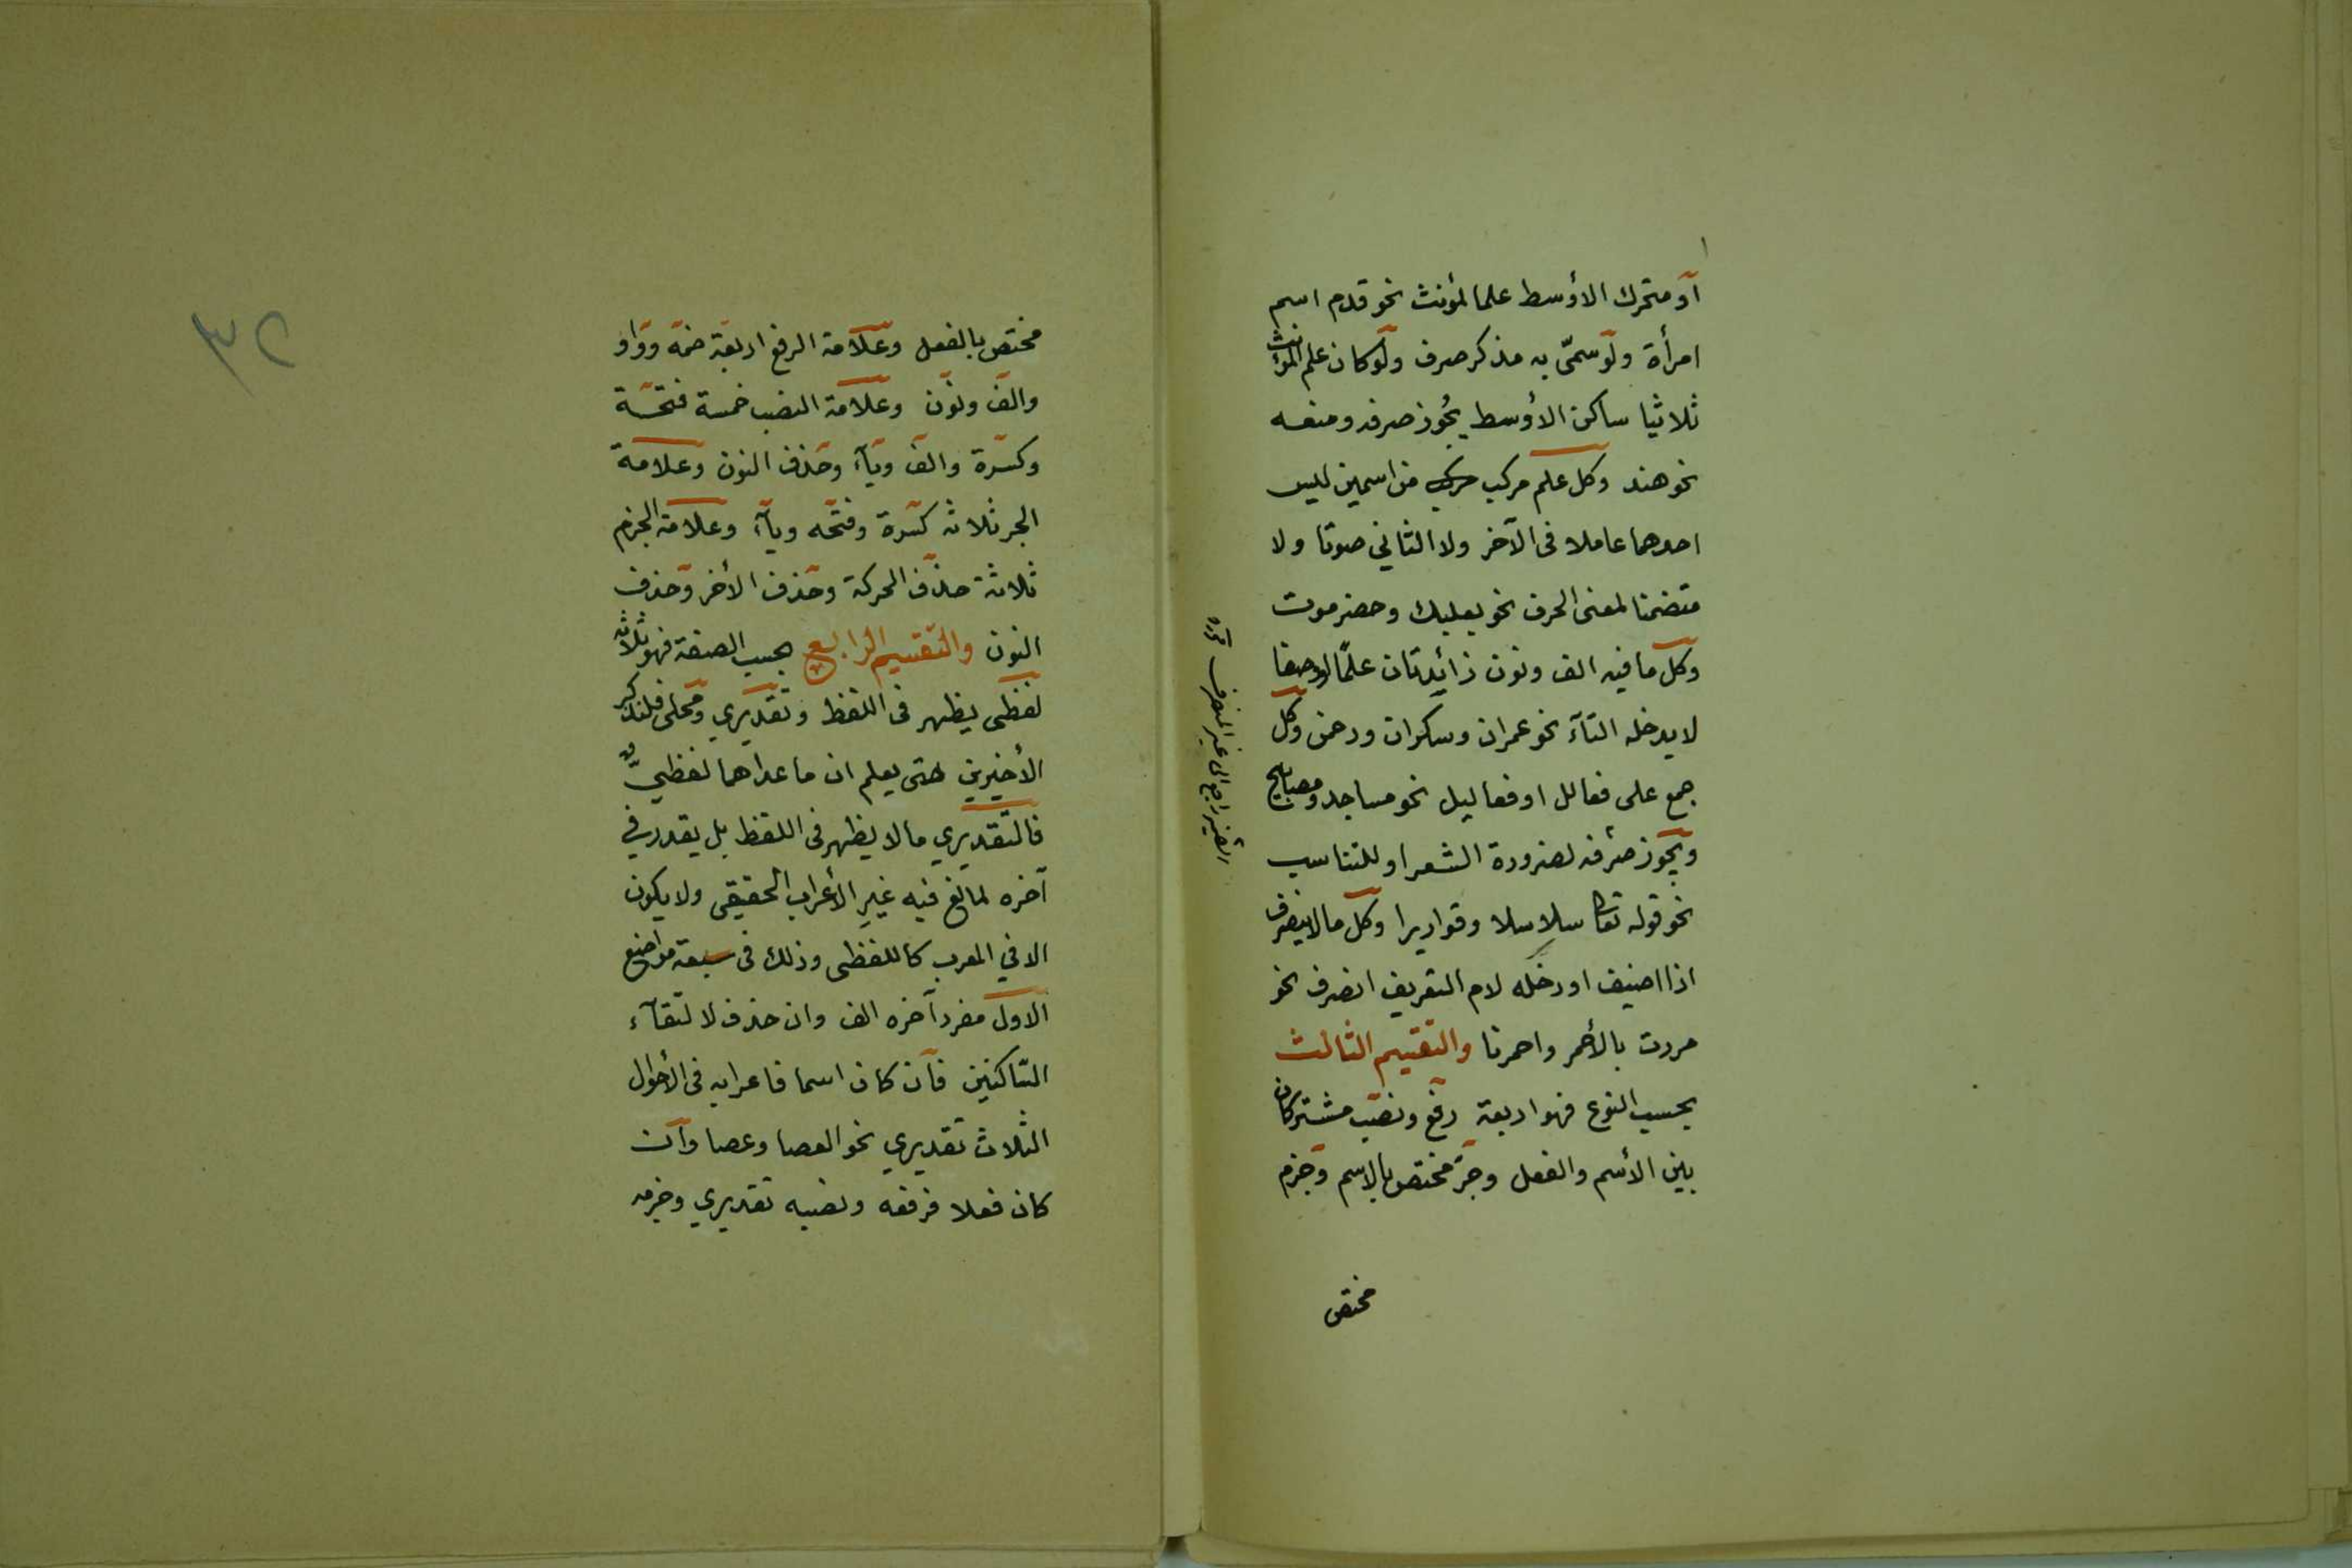 أو متحرك الأوسط علما لمؤنث نحو قدم اسم
امرأة ولو سمّى به مذكر صرف ولو كان علم المؤنث
ثلاثيا ساكن الأوسط يجوز صرفه ومنعه
نحو هند وكل علم مركب من اسمين ليس
احدهما عاملا فى الآخر ولا الثاني صوتا ولا
متضمنا لمعنى الحرف نحو بعلبك وحضرموت
وكل ما فيه الف ونون زائدتان علمًا او وصفا
لا يدخله التآء نحو عمران وسكران ورحمن وكل
جمع على فعالل او فعاليل نحو مساجد ومصابيح
ويجوز صرفه لضرورة الشعر او للتناسب
نحو قوله تعالى سلاسلا وقواريرا وكل ما لا ينصرف
اذا اضيف او دخله لام التعريف انصرف نحو
مررت بالأحمر واحمرنا والتقسيم الثالث
بحسب النوع فهو اربعة رفع ونصب مشتركان
بين الأسم والفعل وجرّ مختص بالإسم وجزم
مختص
الضمير راجع الى غير المنصرف
٣٢
مختص بالفعل وعلامة الرفع اربعة ضمة وواو
والف ونون وعلامة النصب خمسة فتحة
وكسرة والف ويآء وحذف النون وعلامة
الجر ثلاثه كسرة وفتحه ويآء وعلامة الجزم
ثلاثة حذف الحركة وحذف الأخر وحذف
النون والتقسيم الرابع بحسب الصفة فهو ثلاثه
لفظى يظهر فى اللفظ وتقديري ومحلى فلنذكر
الأخيرين حتى يعلم ان ما عداهما لفظيّ
فالتقديري ما لا يظهر فى اللفظ بل يقدر في
آخره لمانع فيه غير الأعراب الحقيقى ولا يكون
الا في المعرب كاللفظى وذلك فى سبعة مواضع
الاول مفرد آخره الف وان حذف لالتقآء
السّاكنين فآن كان اسما فاعرابه فى الأحوال
الثلاث تقديري نحو العصا وعصا وآن
كان فعلا فرفعه ونصبه تقديري وجزمه